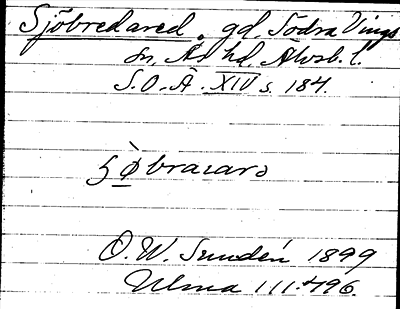 Sjöbredared. gd. Södra Vings
sn, Ås hd, Älvsb. l.
S.O.Ä. XIV s. 184.
O.W. Sundén 1899
Ulma 111:496.